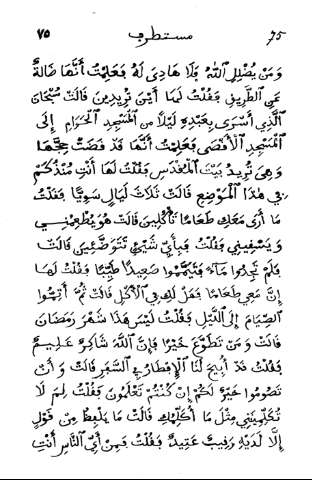 ٧٥ مستطرف 75
وَمَنْ يُضْلِلِ ٱللّٰهُ فَلَا هَادِىَ لَهُ فَعَلِمْتُ أَنَّهَا ضَالَّةٌ
عَنِ ٱلطَّرِيقِ فَقُلْتُ لَهَا أَيْنَ تُرِيدِينَ قَالَتْ سُبْحَانَ
ٱلَّذِي أَسْرَى بِعَبْدِهِ لَيْلًا مِنَ ٱلْمَسْجِدِ ٱلْحَرَامِ إِلَى
ٱلْمَسْجِدِ ٱلْأَقْصَى فَعَلِمْتُ أَنَّهَا قَدْ قَضَتْ حَجَّهَا
وَهِىَ تُرِيدُ بَيْتَ ٱلْمَقْدِسِ فَقُلْتُ لَهَا أَنْتِ مُنْذُ كَمْ
فِي هٰذَا ٱلْمَوْضِعِ قَالَتْ ثَلَاثَ لَيَالٍ سَوِيًّا فَقُلْتُ
مَا أَرَى مَعَكِ طَعَامًا تَأْكُلِينَ قَالَتْ هُوَ يُطْعِمُنِي
وَيَسْقِينِي فَقُلْتُ فَبِأَيِّ شَيْءٍ تَتَوَضَّئِينَ قَالَتْ
فَلَمْ تَجِدُوا مَآءً فَتَيَمَّمُوا صَعِيدًا طَيِّبًا فَقُلْتُ لَهَا
إِنَّ مَعِي طَعَامًا فَهَلْ لَكِ فِي ٱلْأَكْلِ قَالَتْ ثُمَّ أَتِمُّوا
ٱلصِّيَامَ إِلَى ٱللَّيْلِ فَقُلْتُ لَيْسَ هٰذَا شَهْرَ رَمَضَانَ
قَالَتْ وَمَنْ تَطَوَّعَ خَيْرًا فَإِنَّ ٱللّٰهَ شَاكِرٌ عَلِيمٌ
فَقُلْتُ قَدْ أُبِيحَ لَنَا ٱلْإِفْطَارُ فِي ٱلسَّفَرِ قَالَتْ وَأَنْ
تَصُومُوا خَيْرٌ لَكُمْ إِنْ كُنْتُمْ تَعْلَمُونَ فَقُلْتُ لِمَ لَا
تُكَلِّمِينِي مِثْلَ مَا أُكَلِّمُكِ قَالَتْ مَا يَلْفِظُ مِنْ قَوْلٍ
إِلَّا لَدَيْهِ رَقِيبٌ عَتِيدٌ فَقُلْتُ فَمِنْ أَيِّ ٱلنَّاسِ أَنْتِ